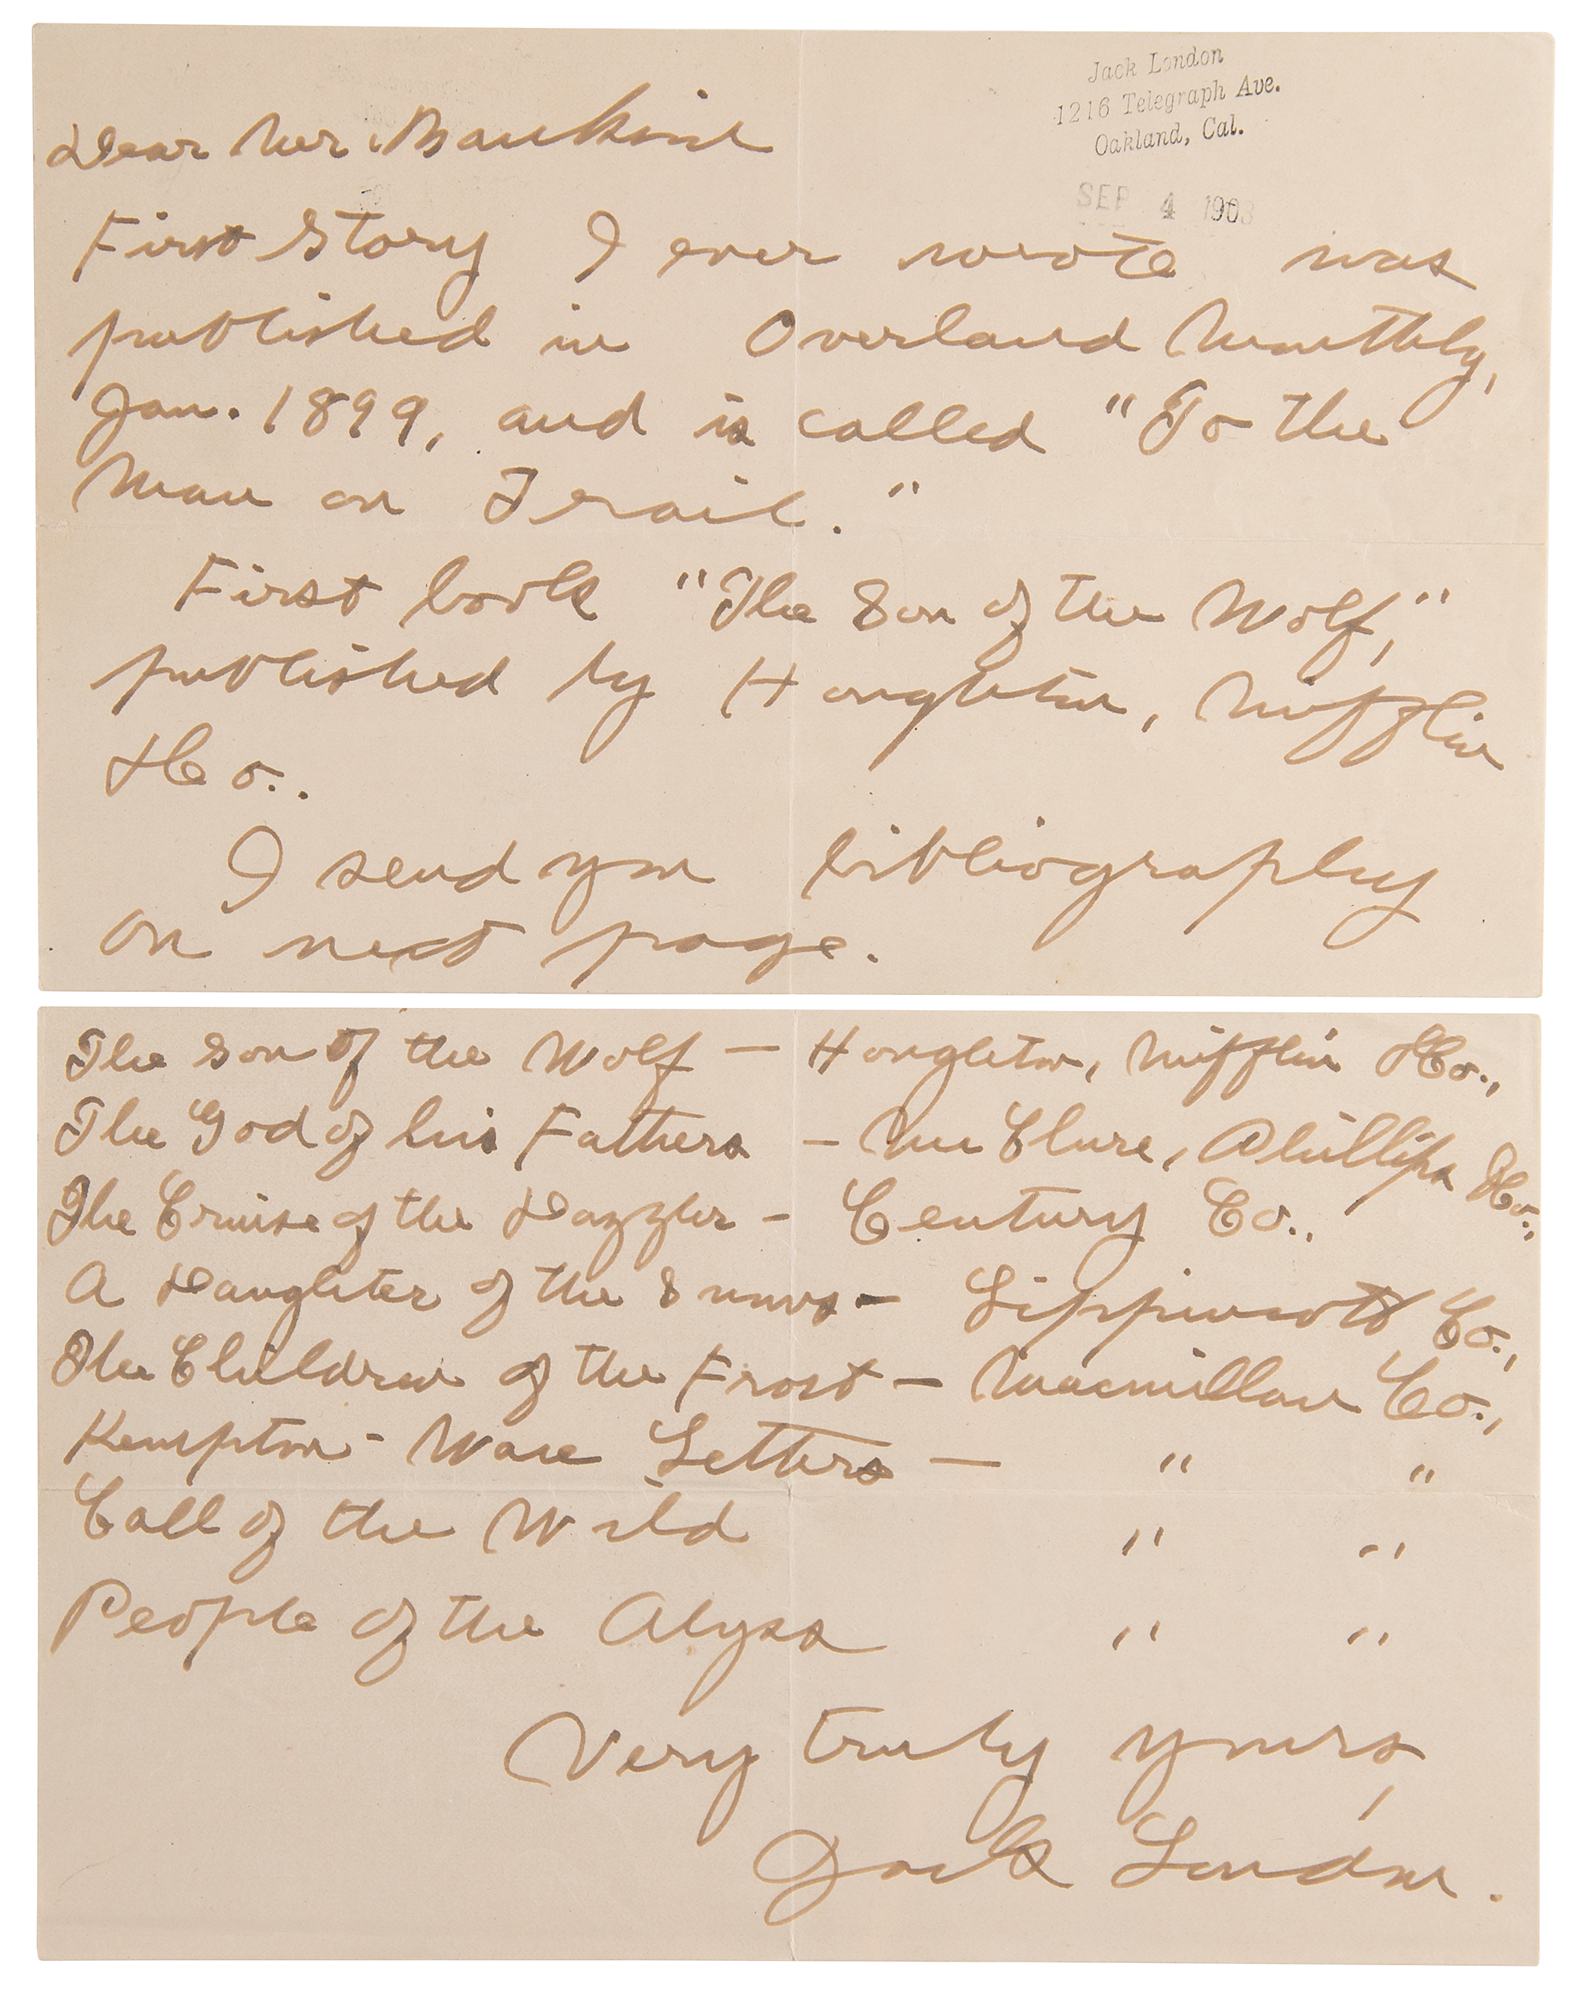 Jack London
1216 Telegraph Ave.
Oakland, Cal.
SEP 4 1903
Dear Mr.
First Story I ever wrote was
published in Overland Monthly,
Jan. 1899, and is called "To the
Man on Trail."
First book "The Son of the Wolf,"
published by Houghton, Mifflin
& Co..
I send you bibliography
on next page.
The Son of the Wolf — Houghton, Mifflin & Co.,
The God of his Fathers — McClure, Phillips & Co.,
The Cruise of the Dazzler — Century Co.,
A Daughter of the Snows — Lippincott Co.,
The Children of the Frost — Macmillan Co.,
Kempton-Wace Letters — " "
Call of the Wild " "
People of the Abyss " "
Very truly yours,
Jack London.